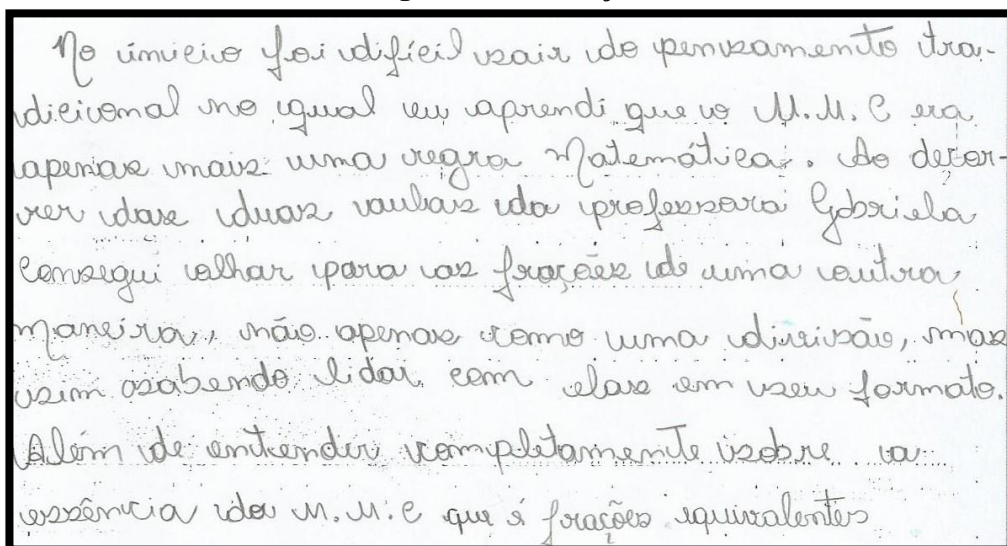 No início foi difícil sair do pensamento tra-
dicional no qual eu aprendi que o M.M.C era
apenas mais uma regra Matemática. Ao decor-
rer das duas aulas da professora Gabriela
Consegui olhar para as frações de uma outra
maneira, não apenas como uma divisão, mas
sim sabendo lidar com elas em seu formato.
Além de entender completamente sobre a
essência do M.M.C que é frações equivalentes